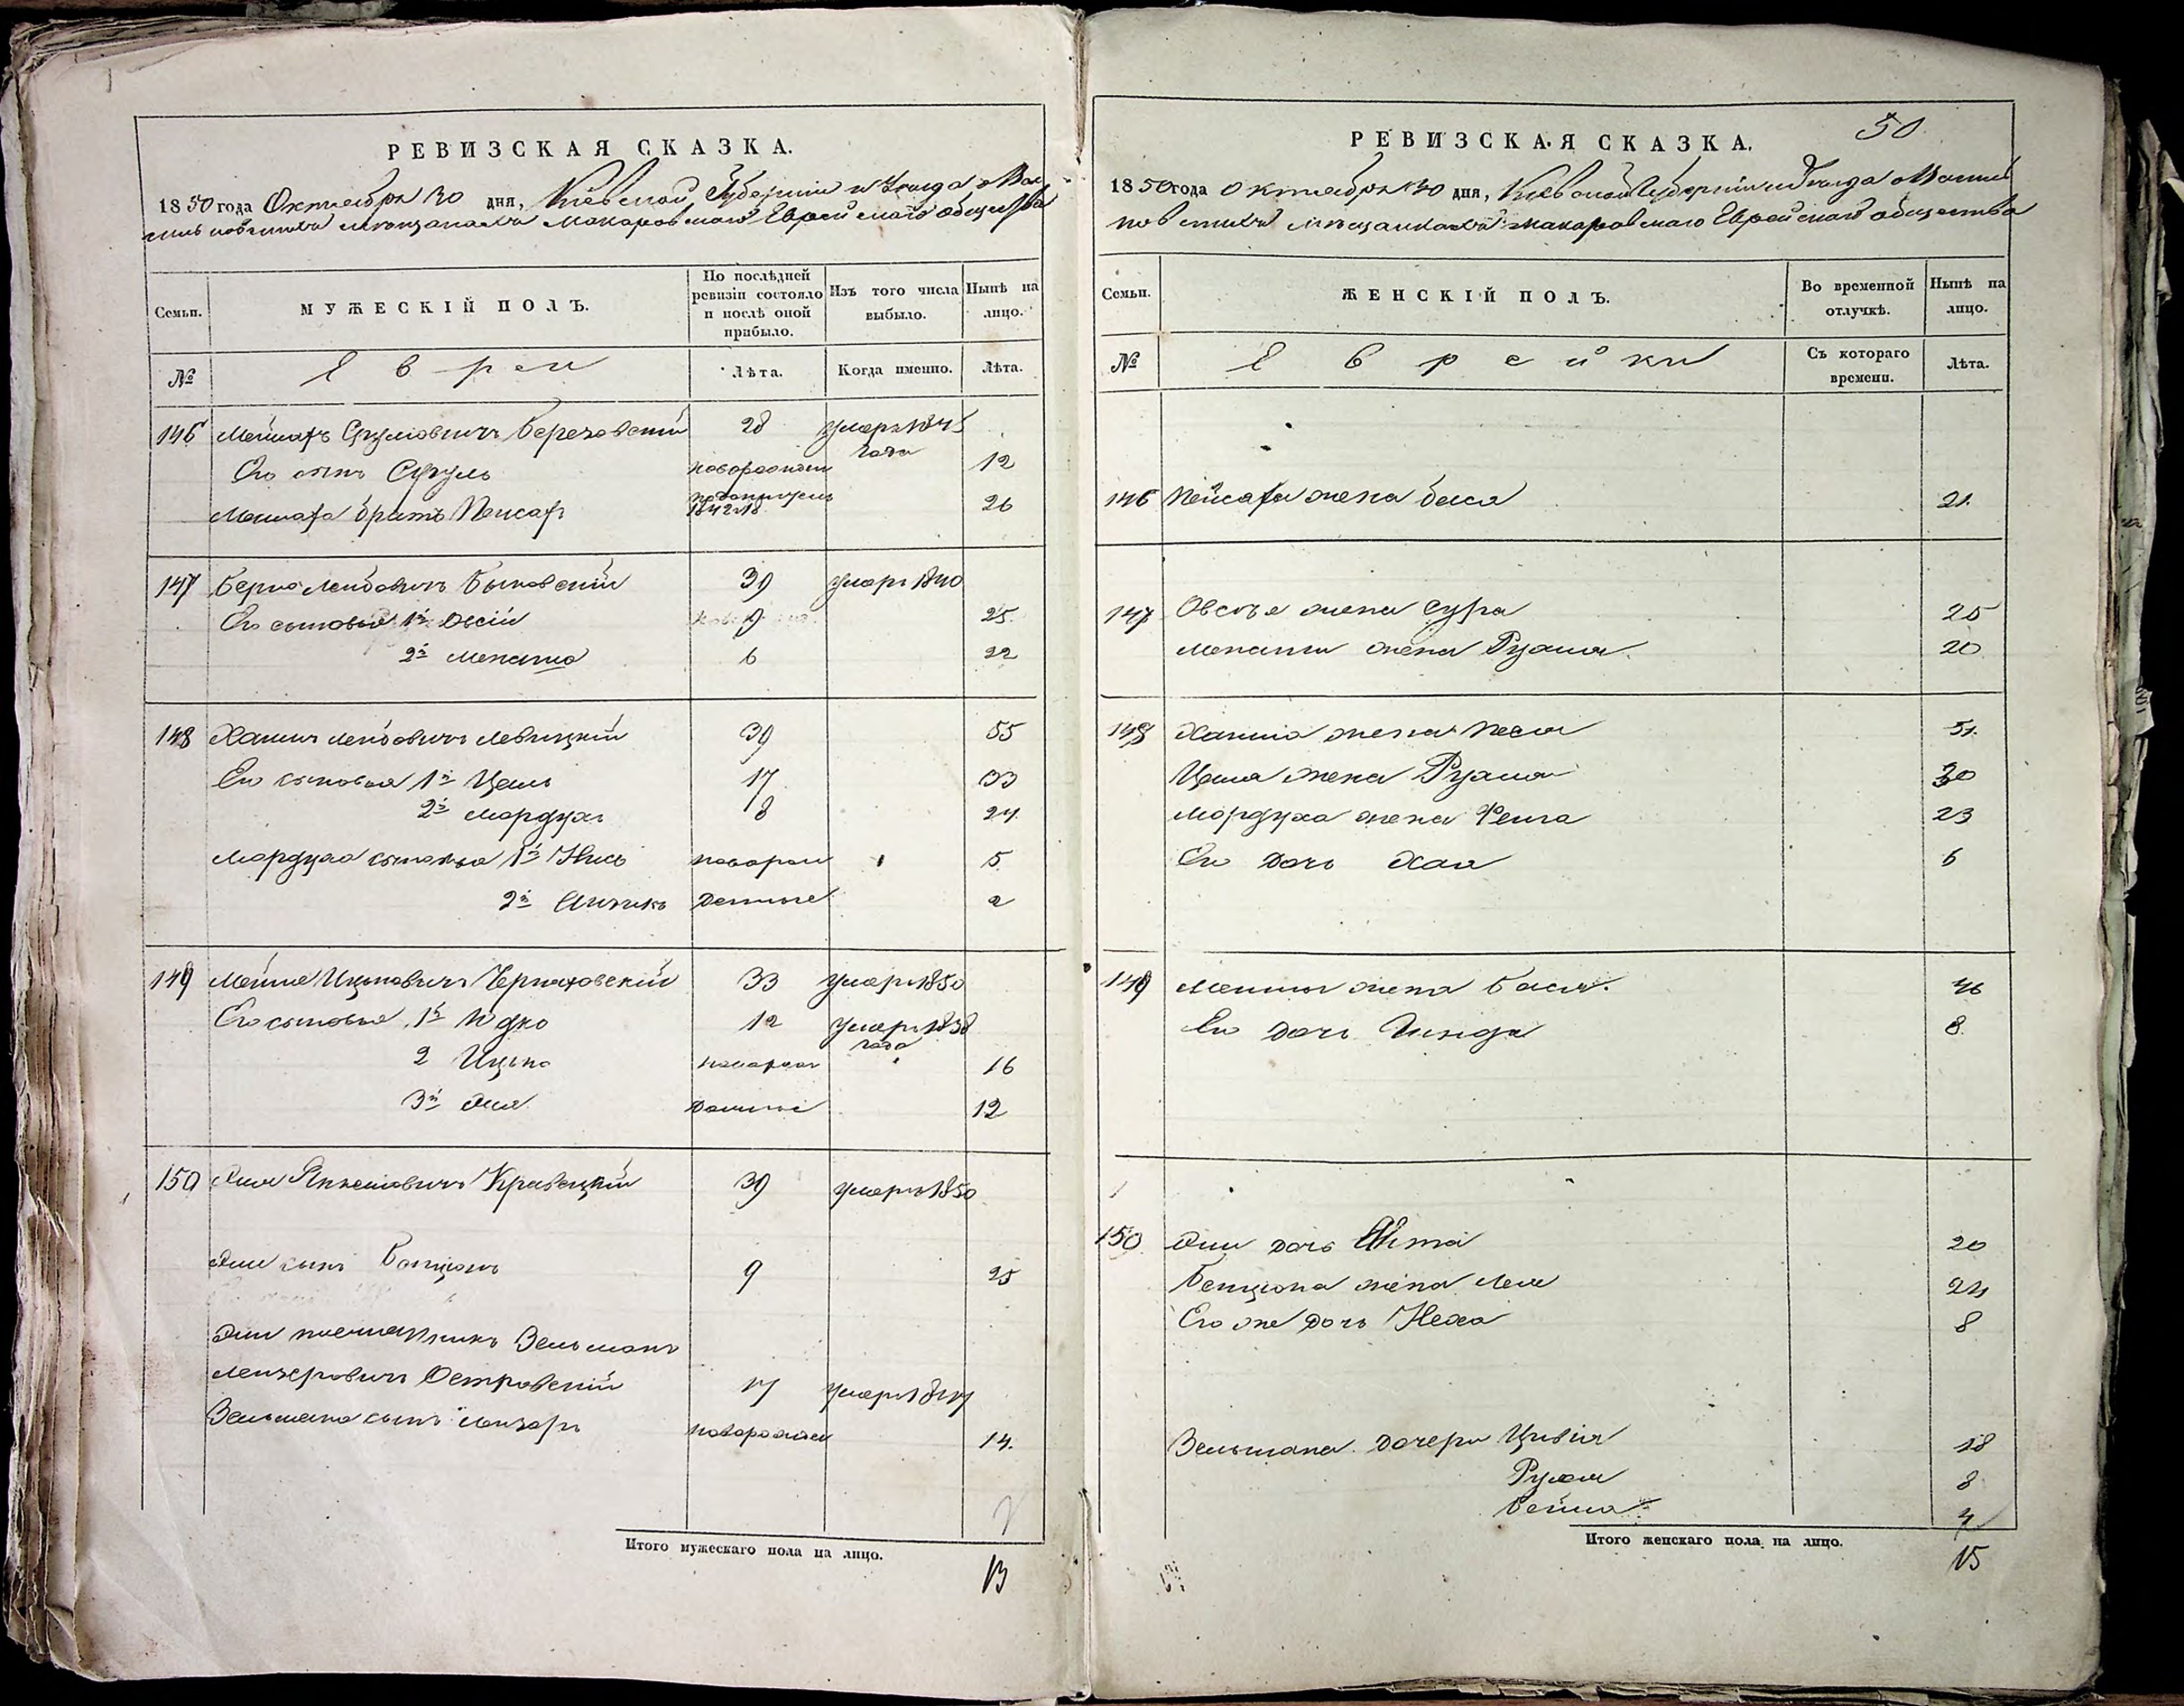 РЕВИЗСКАЯ СКАЗКА.
1850 года Октября 30 дня, Кіевской Губерніи и Уезда о Ва-
силь мѣщанахъ Макаровскаго Еврейскаго общества
Семьи.
МУЖЕСКІЙ ПОЛЪ.
По послѣдней ревизіи состояло и послѣ оной прибыло.
Изъ того числа выбыло.
Нынѣ на лицо.
№
Евреи
Лѣта.
Когда именно.
Лѣта.
146 Срулiовичъ Березовскій 28 умеръ 1845
года
Его сынъ Сруль новорожден 12
братъ Пейсах 1842 18 26
147 Берко Лейбовичъ Быковскій 39 умеръ 1840
Его сыновья 1й Овсій 9 25
2й Менашо 6 22
148 Хаимъ Лейбовичъ Левицкій 39 55
Его сыновья 1й 17 33
2й Мордухъ 8 24
Мордуха сыновья 1й новорож 5
2й денные 2
149 Ицковичъ Черняховскій 33 умеръ 1850
Его сыновья 1й Юдко 12 умеръ 1838
года
2 Ицько новорож 16
3й денные 12
150 Кравецкій 39 умеръ 1850
сынъ Бенціонъ 9 25
племянникъ Зельманъ
Лейзеровичъ Островскій 17 умеръ 1847
Зельмана сынъ Лейзоръ новорожден 14.
Итого мужескаго пола на лицо.
13
РЕВИЗСКАЯ СКАЗКА.
50
1850 года Октября 30 дня, Кіевской Губерніи и Уезда о Василь
мѣщанкахъ Макаровскаго Еврейскаго общества
Семьи.
ЖЕНСКІЙ ПОЛЪ.
Во временной отлучкѣ.
Нынѣ на лицо.
№
Еврейки
Съ котораго времени.
Лѣта.
146 Пейсаха жена Бася 21.
147 Овсѣя жена Сура 25
Менаши жена Рухля 20
148 Хаима жена Песя 51.
жена Рухля 30
Мордуха жена Фейга 23
Его дочь Хая 6
149 жена Бася 46
Его дочь 8
150 дочь 20
Бенціона жена Лея 24
Его же дочь Неха 8
Зельмана дочери Цивія 18
Рухля 8
Бейла 4
Итого женскаго пола на лицо.
15